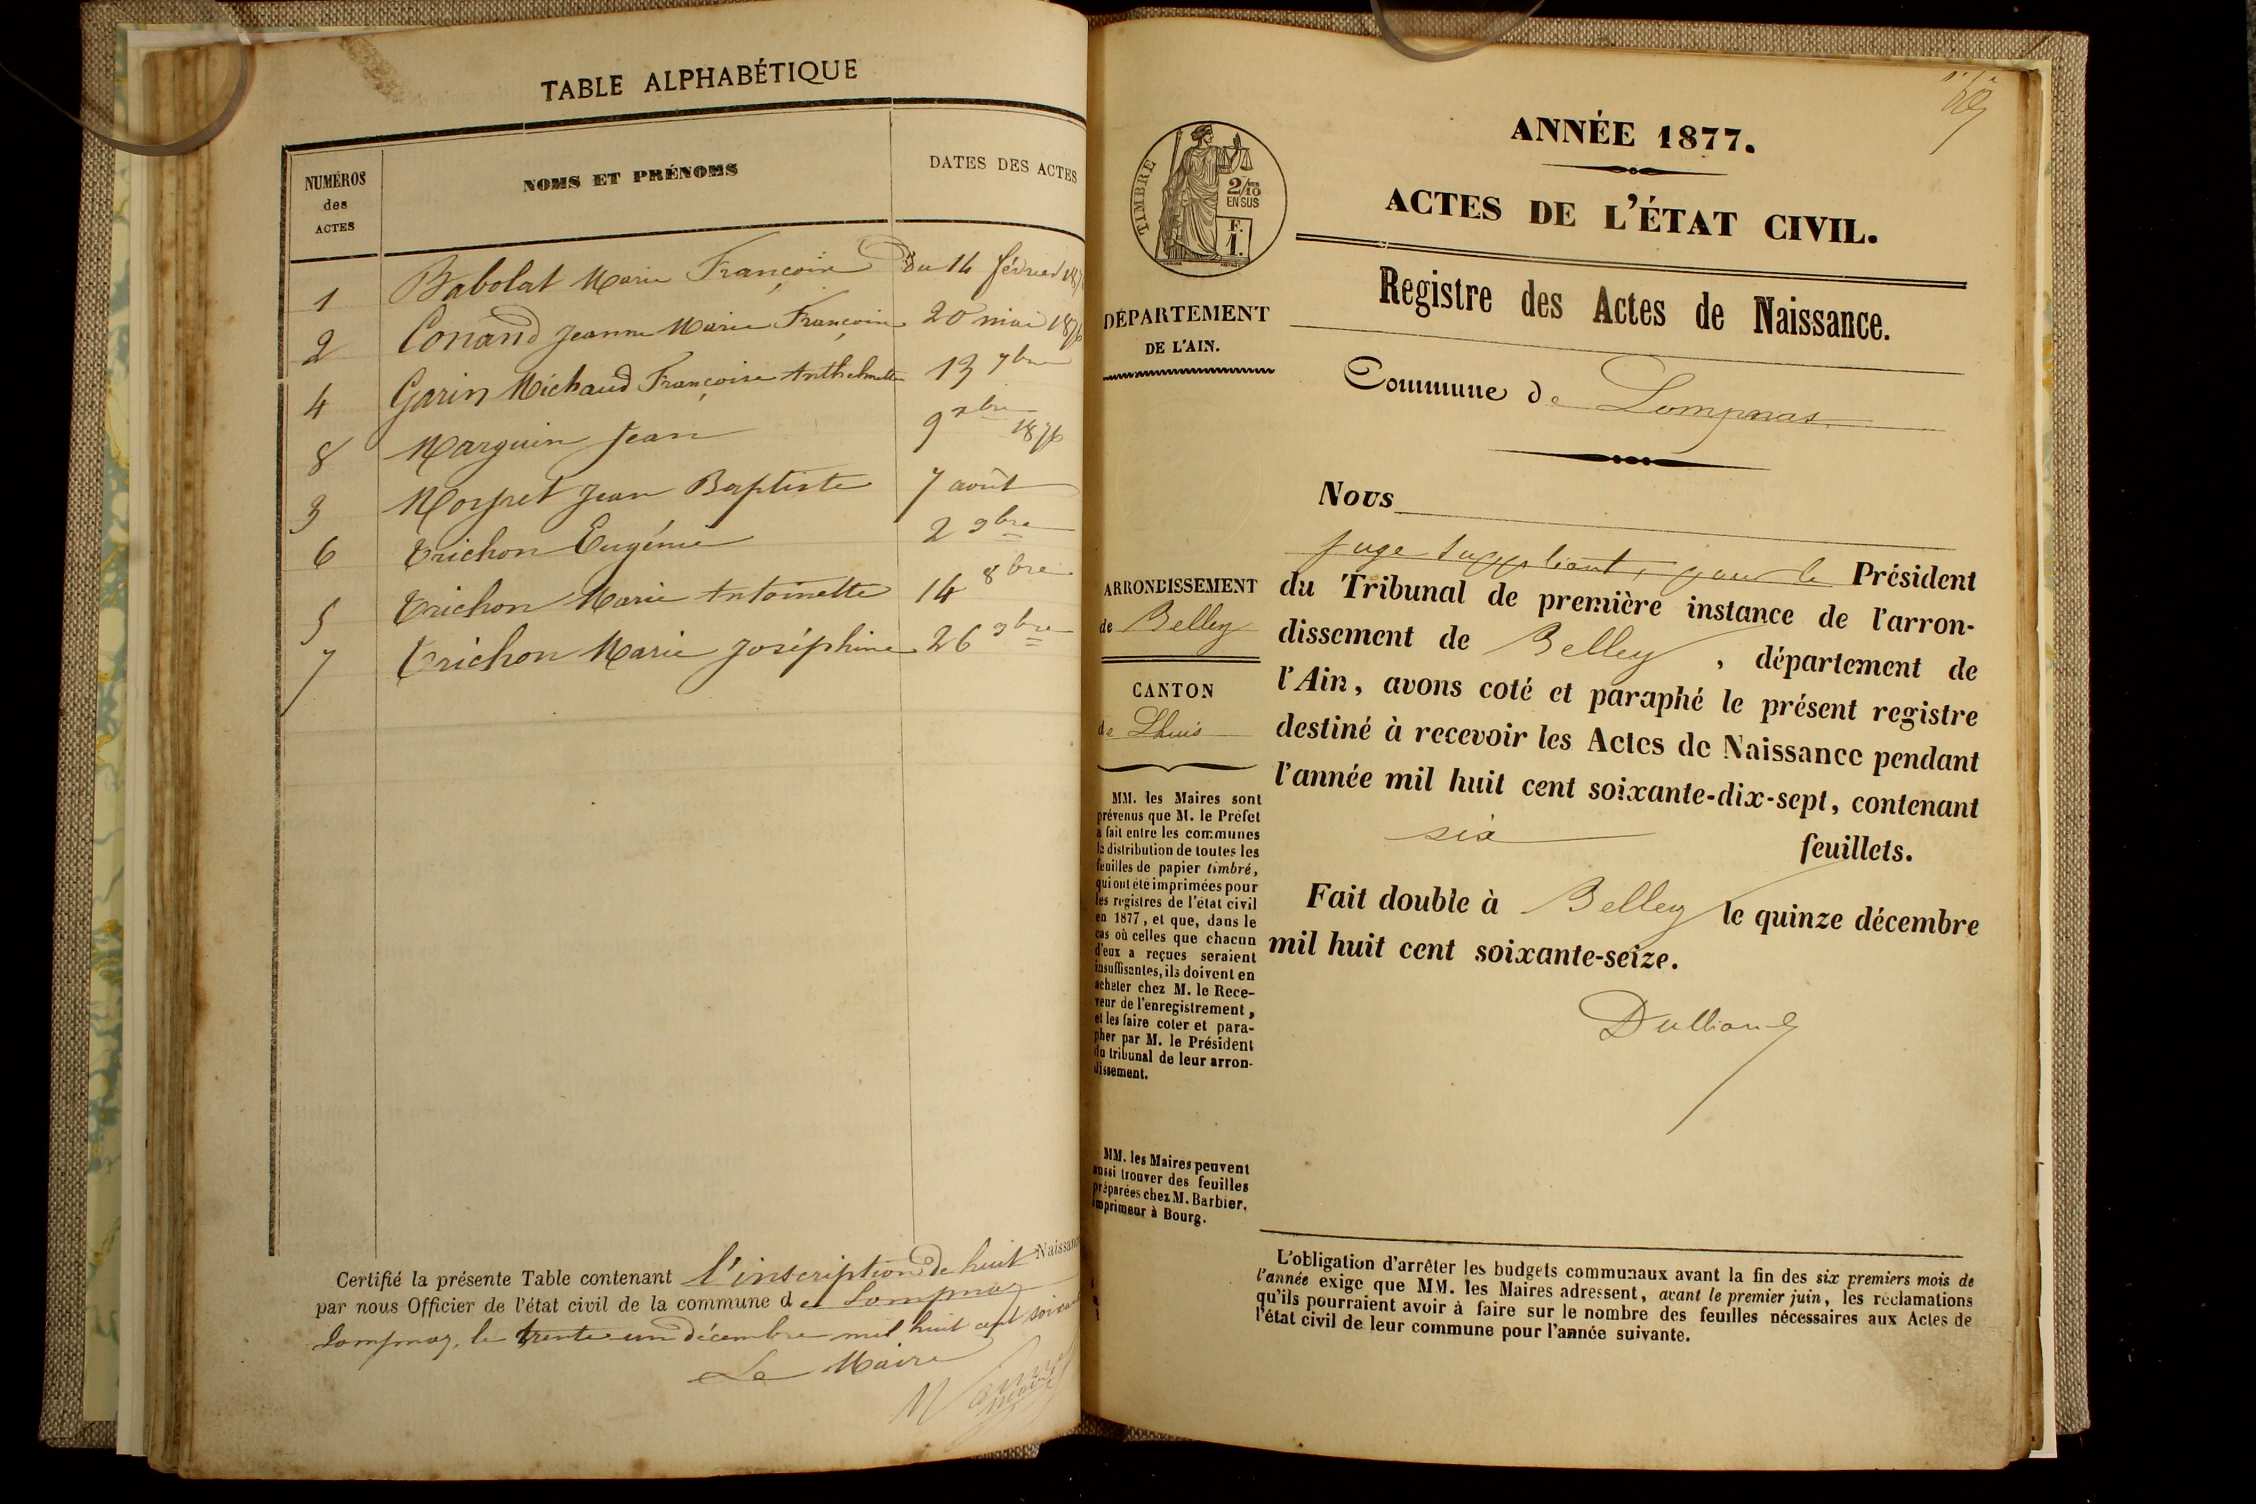 TABLE ALPHABÉTIQUE
NUMÉROS des ACTES
NOMS ET PRÉNOMS
DATES DES ACTES
1 Babolat Marie Françoise Du 14 février 187
2 Conand Jeanne Marie Françoise 20 mai 1876
4 Garin Michaud Françoise Anthelmette 13 7bre
8 Marguin Jean 9 xbre 1876
3 Morgret Jean Baptiste 7 août
6 Trichon Eugénie 2 9bre
5 Trichon Marie Antoinette 14 8bre
7 Trichon Marie Joséphine 26 9bre
Certifié la présente Table contenant l'inscription de huit Naissan
par nous Officier de l'état civil de la commune de Lompnaz
Lompnaz, le trente un décembre mil huit cent soixant
Le Maire
ANNÉE 1877.
ACTES DE L'ÉTAT CIVIL.
TIMBRE
2/10 EN SUS
F. 1.
Registre des Actes de Naissance.
DÉPARTEMENT
DE L'AIN.
Commune de Lompnas
Nous
juge suppléant, pour le Président
du Tribunal de première instance de l'arron-
dissement de Belley, département de
l'Ain, avons coté et paraphé le présent registre
destiné à recevoir les Actes de Naissance pendant
l'année mil huit cent soixante-dix-sept, contenant
six feuillets.
Fait double à Belley le quinze décembre
mil huit cent soixante-seize.
ARRONDISSEMENT
de Belley
CANTON
de Lhuis
MM. les Maires sont
prévenus que M. le Préfet
a fait entre les communes
la distribution de toutes les
feuilles de papier timbré,
qui ont été imprimées pour
les registres de l'état civil
en 1877, et que, dans le
cas où celles que chacun
d'eux a reçues seraient
insuffisantes, ils doivent en
acheter chez M. le Rece-
veur de l'enregistrement,
et les faire coter et para-
pher par M. le Président
du tribunal de leur arron-
dissement.
MM. les Maires peuvent
aussi trouver des feuilles
préparées chez M. Barbier,
imprimeur à Bourg.
L'obligation d'arrêter les budgets communaux avant la fin des six premiers mois de
l'année exige que MM. les Maires adressent, avant le premier juin, les réclamations
qu'ils pourraient avoir à faire sur le nombre des feuilles nécessaires aux Actes de
l'état civil de leur commune pour l'année suivante.